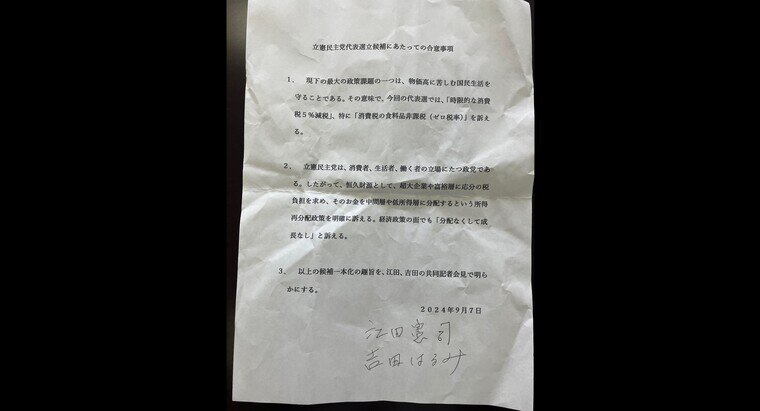 立憲民主党代表選立候補にあたっての合意事項
1、 現下の最大の政策課題の一つは、物価高に苦しむ国民生活を
守ることである。その意味で、今回の代表選では、「時限的な消費
税5%減税」、特に「消費税の食料品非課税（ゼロ税率）」を訴え
る。
2、 立憲民主党は、消費者、生活者、働く者の立場にたつ政党であ
る。したがって、恒久財源として、超大企業や富裕層に応分の税
負担を求め、そのお金を中間層や低所得層に分配するという所得
再分配政策を明確に訴える。経済政策の面でも「分配なくして成
長なし」と訴える。
3、 以上の候補一本化の趣旨を、江田、吉田の共同記者会見で明ら
かにする。
2024年9月7日
江田憲司
吉田はるみ